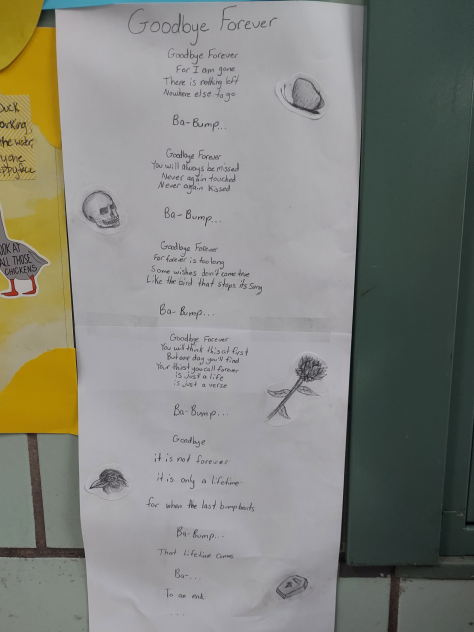 Goodbye Forever
Goodbye Forever
For I am gone
There is nothing left
Nowhere else to go
Ba-Bump...
Goodbye Forever
You will always be missed
Never again touched
Never again kissed
Ba-Bump...
Goodbye Forever
For forever is too long
Some wishes don't come true
Like the bird that stops its song
Ba-Bump...
Goodbye Forever
You will think this at first
But one day you'll find
Your thirst you call forever
is just a life
is just a verse
Ba-Bump...
Goodbye
it is not forever
it is only a lifetime
for when the last bump beats
Ba-Bump...
That lifetime comes
Ba-...
To an end.
...
Duck
the water,
LOOK AT
ALL THOSE
CHICKENS